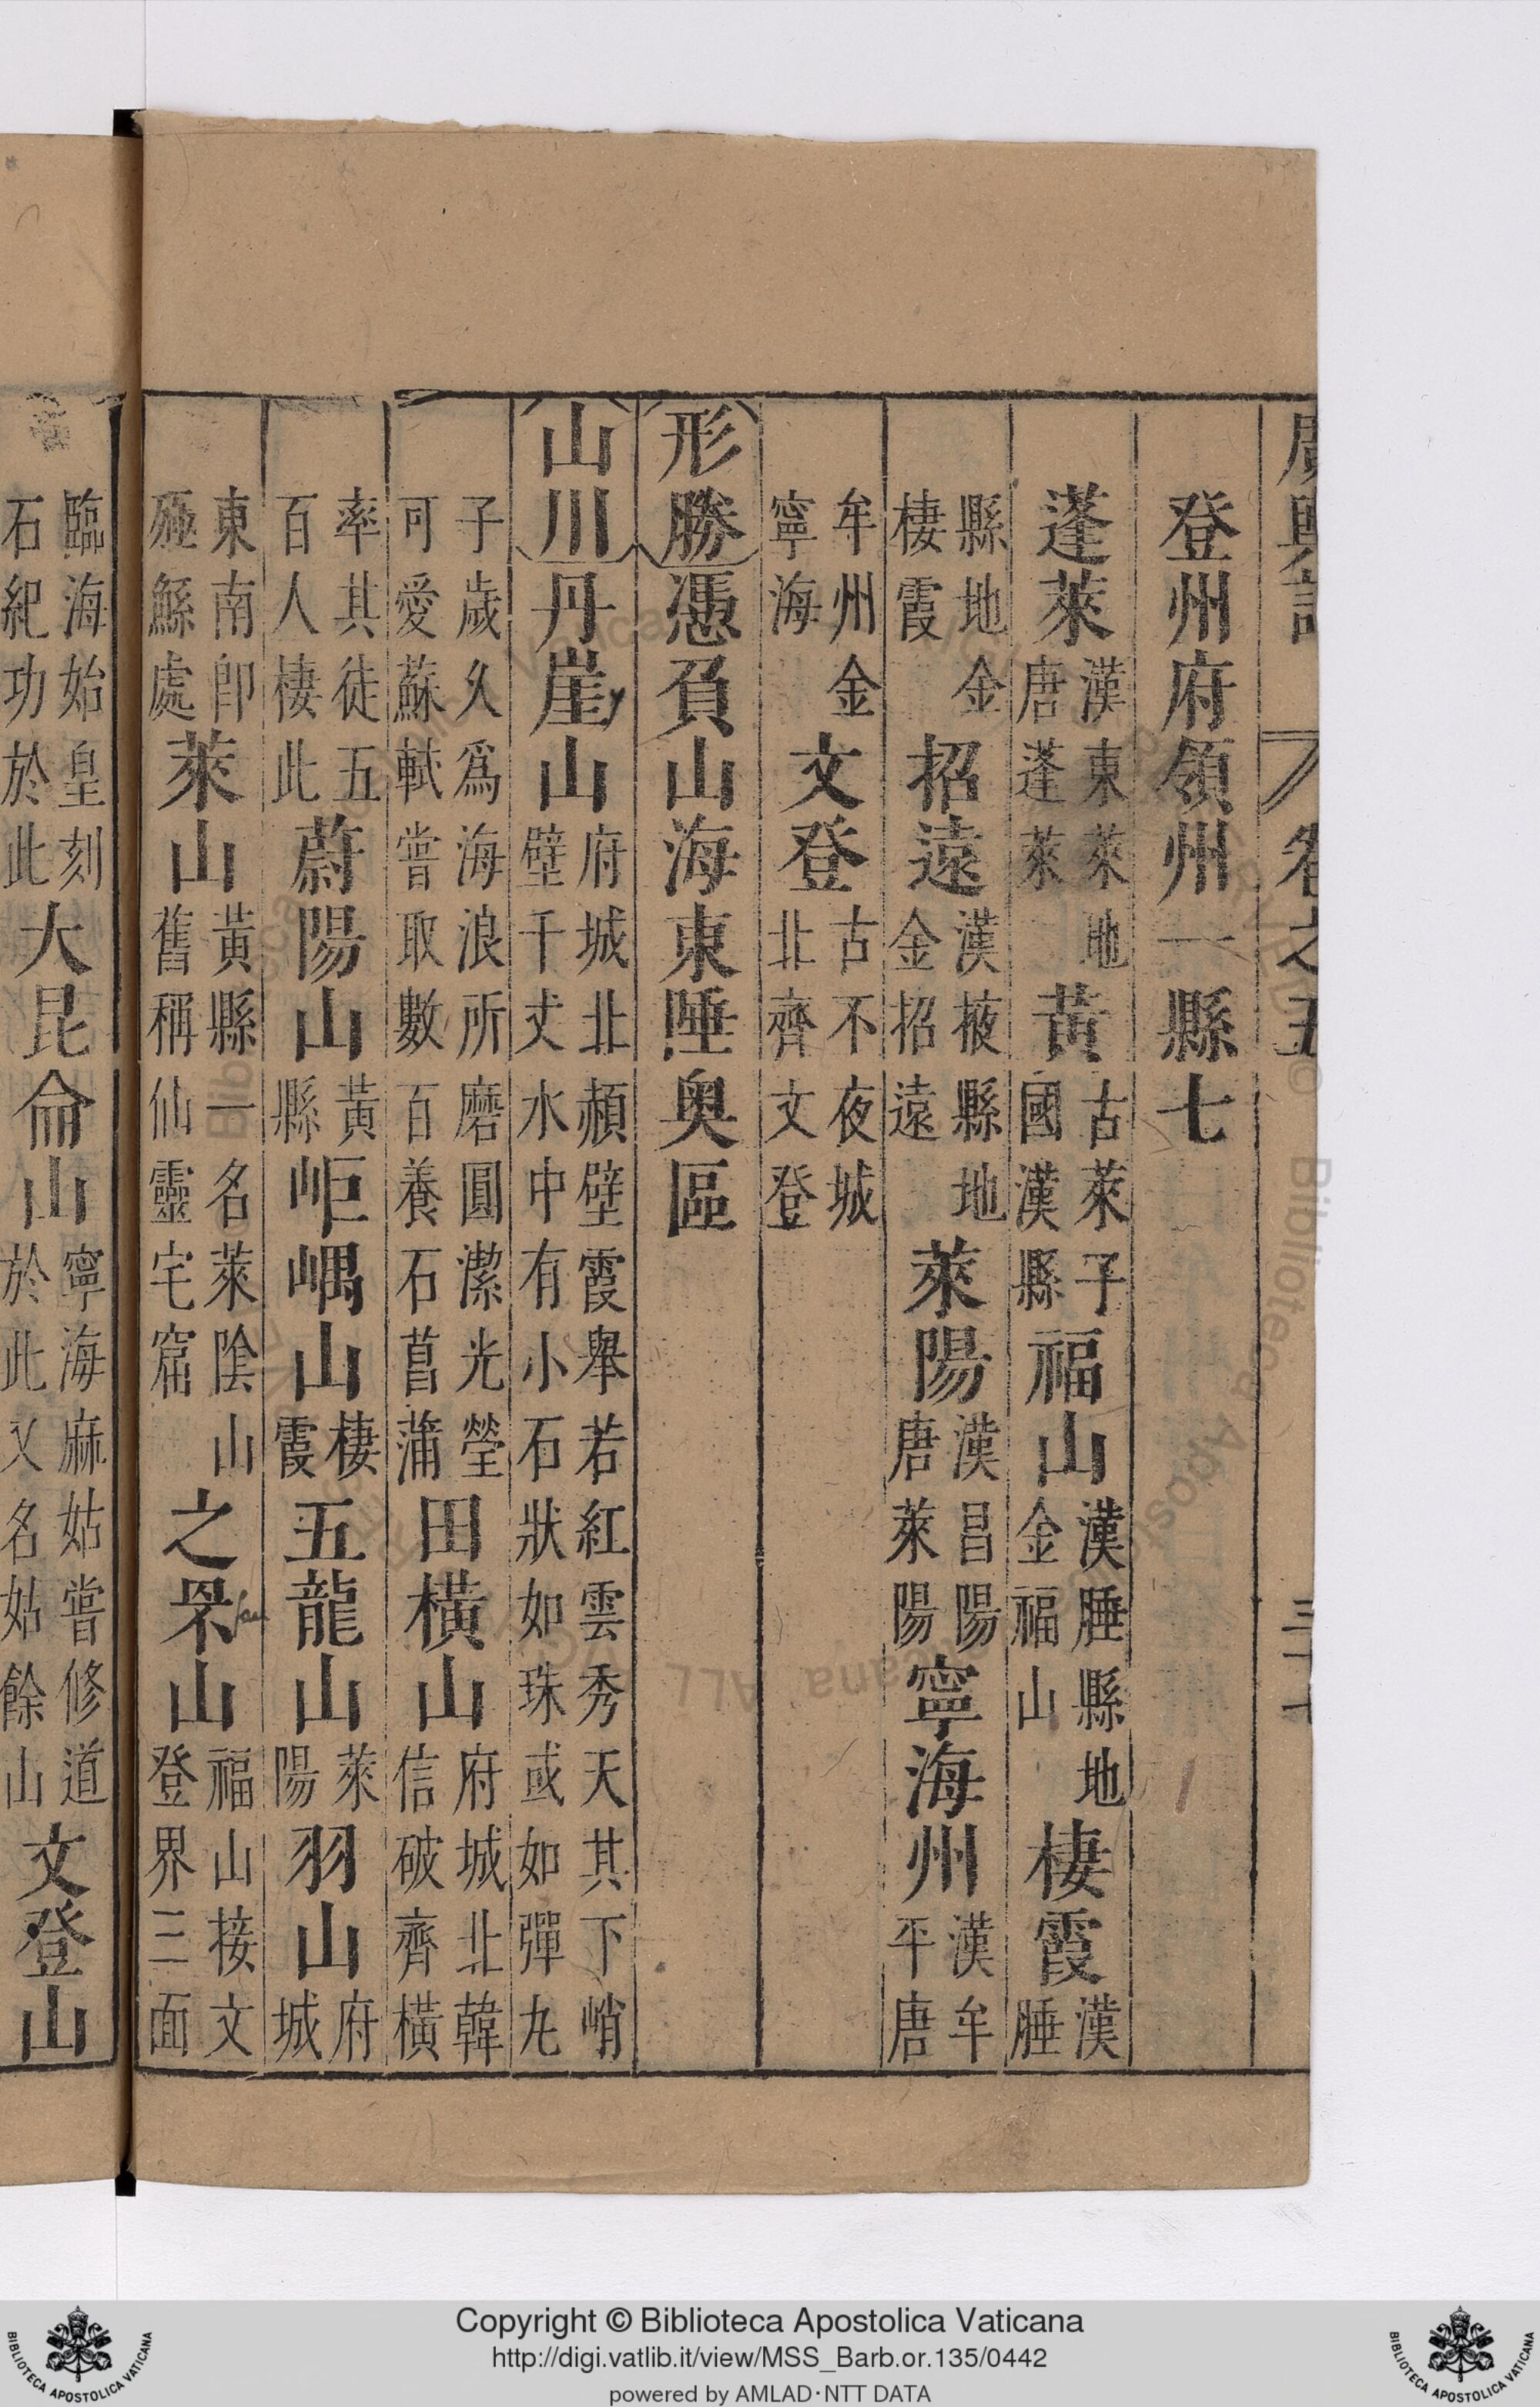 廣輿記 卷之五
登州府領州一縣七
蓬萊漢東萊地唐蓬萊黃古萊子國漢縣福山漢腄縣地金福山棲霞漢腄
縣地金棲霞招遠漢掖縣地金招遠萊陽漢昌陽唐萊陽寧海州漢牟平唐
牟州金寧海文登古不夜城北齊文登
形勝憑負山海東陲奧區
山川丹崖山府城北頳壁霞舉若紅雲秀天其下峭壁千丈水中有小石狀如珠或如彈丸
子歲久爲海浪所磨圓潔光瑩可愛蘇軾嘗取數百養石菖蒲田橫山府城北韓信破齊橫
率其徒五百人棲此蔚陽山黃縣岠嵎山棲霞五龍山萊陽羽山府城
東南卽殛鯀處萊山黃縣一名萊陰山舊稱仙靈宅窟之罘山福山接文登界三面
臨海始皇刻石紀功於此大昆侖山寧海麻姑嘗修道於此又名姑餘山文登山
Copyright © Biblioteca Apostolica Vaticana
http://digi.vatlib.it/view/MSS_Barb.or.135/0442
powered by AMLAD·NTT DATA
BIBLIOTECA APOSTOLICA VATICANA
BIBLIOTECA APOSTOLICA VATICANA